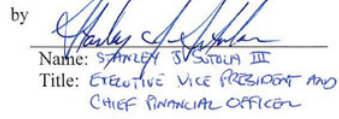 by
Name: STANLEY J SUTULA III
Title: EXECUTIVE VICE PRESIDENT AND
CHIEF FINANCIAL OFFICER